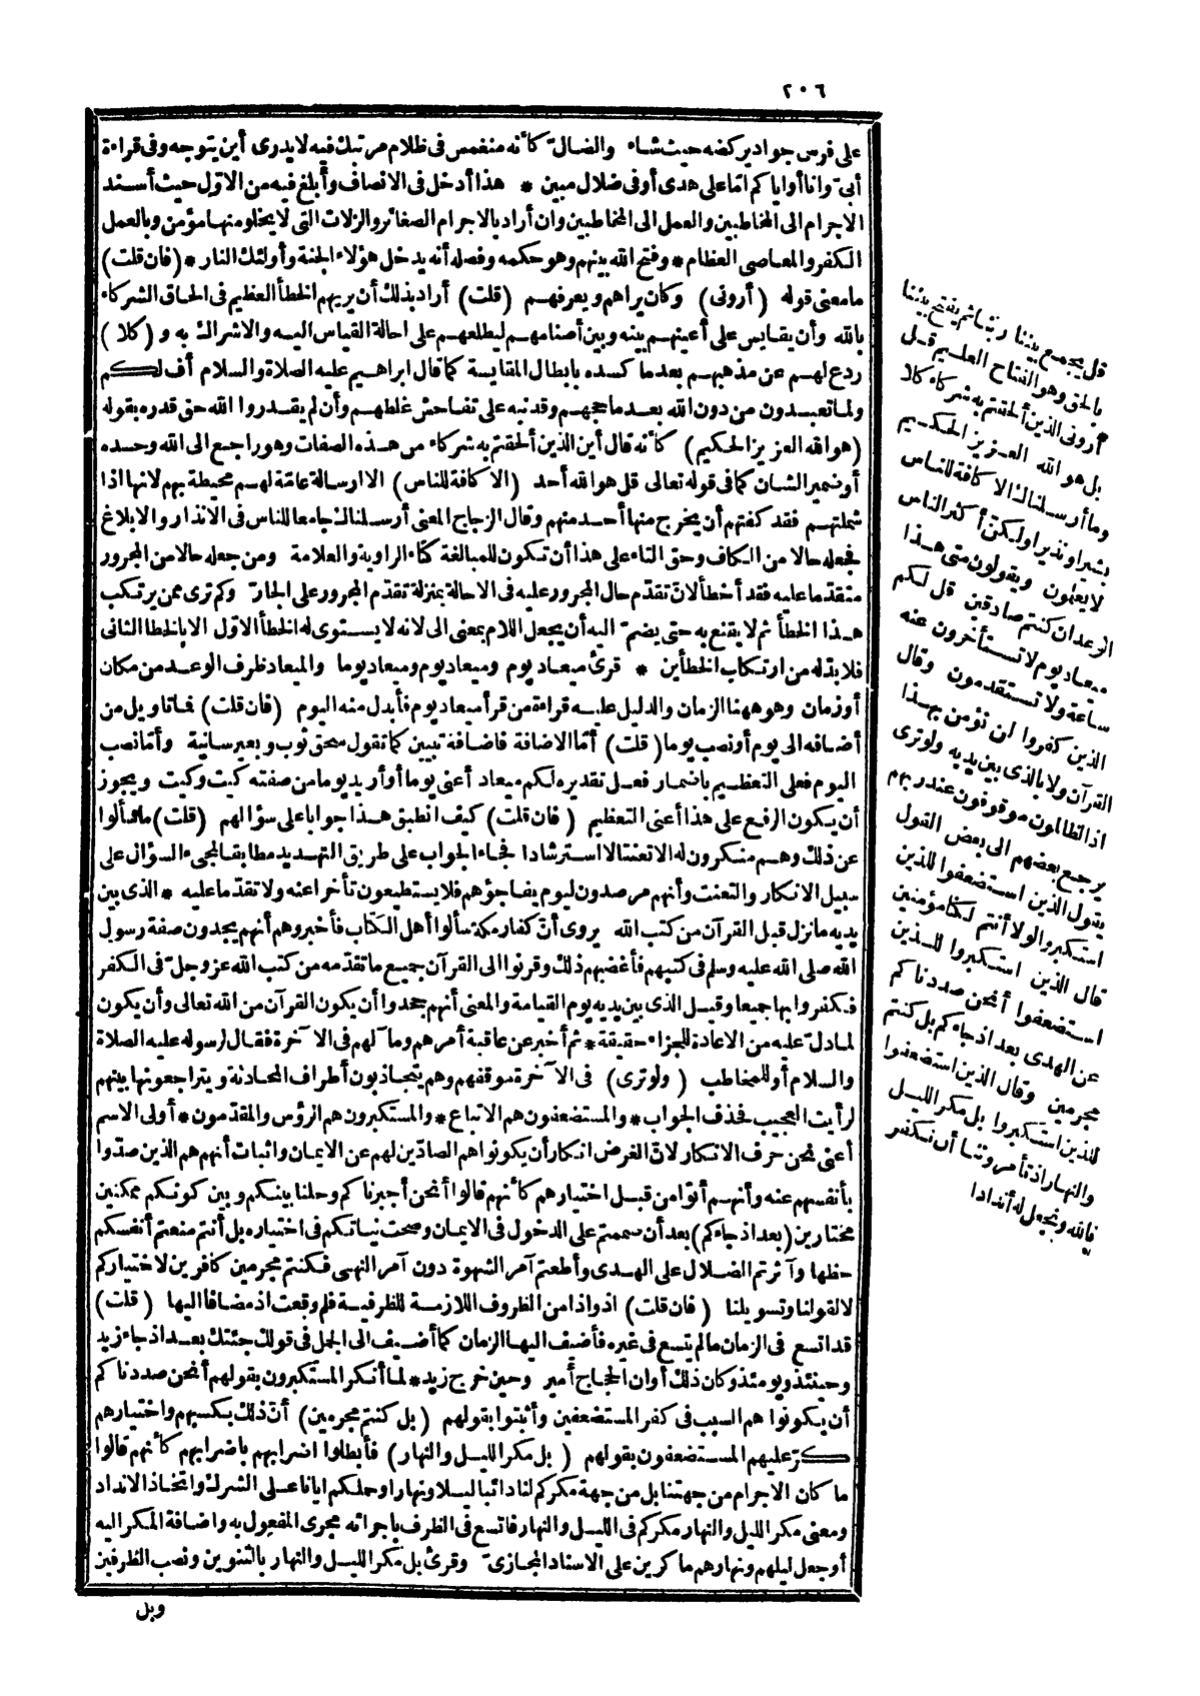 ٢٠٦
على فرس جواد يركضه حيث شاء والضالّ كأنه منغمس فى ظلام مرتبك فيه لا يدرى أين يتوجه وفى قراءة
أبىّ وانا أو اياكم امّا على هدى أو فى ضلال مبين * هذا أدخل فى الانصاف وأبلغ فيه من الاوّل حيث أسند
الاجرام الى المخاطبين والعمل الى المخاطبين وان أراد بالاجرام الصغائر والزلات التى لا يخلو منها مؤمن وبالعمل
الكفر والمعاصى العظام * وفتح الله بينهم وهو حكمه وفصله أنه يدخل هؤلاء الجنة وأولئك النار * (فان قلت)
ما معنى قوله (أرونى) وكان يراهم ويعرفهم (قلت) أراد بذلك أن يريهم الخطأ العظيم فى الحاق الشركاء
بالله وأن يقايس على أعينهم بينه وبين أصنامهم ليطلعهم على احالة القياس اليه والاشراك به و (كلا)
ردع لهم عن مذهبهم بعد ما كسده بابطال المقايسة كما قال ابراهيم عليه الصلاة والسلام أف لكم
ولما تعبدون من دون الله بعد ما حجهم وقد نبه على تفاحش غلطهم وأن لم يقدروا الله حق قدره بقوله
(هو الله العزيز الحكيم) كأنه قال أين الذين ألحقتم به شركاء من هذه الصفات وهو راجع الى الله وحده
أو ضمير الشان كما فى قوله تعالى قل هو الله أحد (الا كافة للناس) الا ارسالة عامّة لهم محيطة بهم لانها اذا
شملتهم فقد كفتهم أن يخرج منها أحد منهم وقال الزجاج المعنى أرسلناك جامعا للناس فى الانذار والابلاغ
فجعله حالا من الكاف وحق التاء على هذا أن تكون للمبالغة كتاء الراوية والعلامة ومن جعله حالا من المجرور
متقدّما عليه فقد أخطأ لانّ تقدّم حال المجرور عليه فى الاحالة بمنزلة تقدّم المجرور على الجارّ وكم ترى ممن يرتكب
هذا الخطأ ثم لا يقنع به حتى يضمّ اليه أن يجعل اللام بمعنى الى لانه لا يستوى له الخطأ الاوّل الا بالخطا الثانى
فلا بدّ له من ارتكاب الخطأين * قرئ ميعاد يوم وميعاد يوم وميعاد يوما والميعاد ظرف الوعد من مكان
أو زمان وهو ههنا الزمان والدليل عليه قراءة من قرأ ميعاد يوم فأبدل منه اليوم (فان قلت) فما تأويل من
أضافه الى يوم أو نصب يوما (قلت) أمّا الاضافة فاضافة تبيين كما تقول سحق ثوب وبعير سانية وأمّا نصب
اليوم فعلى التعظيم باضمار فعل تقديره لكم ميعاد أعنى يوما أو أريد يوما من صفته كيت وكيت ويجوز
أن يكون الرفع على هذا أعنى التعظيم (فان قلت) كيف انطبق هذا جوابا على سؤالهم (قلت) ما سألوا
عن ذلك وهم منكرون له الا تعنتا لا استرشادا فجاء الجواب على طريق التهديد مطابقا لمجىء السؤال على
سبيل الانكار والتعنت وأنهم مرصدون ليوم يفاجؤهم فلا يستطيعون تأخرا عنه ولا تقدّما عليه * الذى بين
يديه ما نزل قبل القرآن من كتب الله يروى أنّ كفار مكة سألوا أهل الكتاب فأخبروهم أنهم يجدون صفة رسول
الله صلى الله عليه وسلم فى كتبهم فأغضبهم ذلك وقرنوا الى القرآن جميع ما تقدّمه من كتب الله عز وجلّ فى الكفر
فكفروا بها جميعا وقيل الذى بين يديه يوم القيامة والمعنى أنهم جحدوا أن يكون القرآن من الله تعالى وأن يكون
لما دلّ عليه من الاعادة للجزاء حقيقة * ثم أخبر عن عاقبة أمرهم وما لهم فى الآخرة فقال لرسوله عليه الصلاة
والسلام أو للمخاطب (ولو ترى) فى الآخرة موقفهم وهم يتجاذبون أطراف المحادثة ويتراجعونها بينهم
لرأيت العجيب فحذف الجواب * والمستضعفون هم الاتباع * والمستكبرون هم الرؤس والمقدّمون * أولى الاسم
أعنى نحن حرف الانكار لانّ الغرض انكار أن يكونوا هم الصادّين لهم عن الايمان واثبات أنهم هم الذين صدّوا
بأنفسهم عنه وأنهم أتوا من قبل اختيارهم كأنهم قالوا أنحن أجبرناكم وحلنا بينكم وبين كونكم ممكنين
مختارين (بعد اذ جاءكم) بعد أن صممتم على الدخول فى الايمان وصحت نياتكم فى اختياره بل أنتم منعتم أنفسكم
حظها وآثرتم الضلال على الهدى وأطعتم آمر الشهوة دون آمر النهى فكنتم مجرمين كافرين لاختياركم
لا لقولنا وتسويلنا (فان قلت) اذ واذا من الظروف اللازمة للظرفية فلم وقعت اذ مضافا اليها (قلت)
قد اتسع فى الزمان ما لم يتسع فى غيره فأضيف اليها الزمان كما أضيف الى الجمل فى قولك جئتك بعد اذ جاء زيد
وحينئذ ويومئذ وكان ذلك أوان الحجاج أمير وحين خرج زيد * لما أنكر المستكبرون بقولهم أنحن صددناكم
أن يكونوا هم السبب فى كفر المستضعفين وأثبتوا بقولهم (بل كنتم مجرمين) أنّ ذلك بكسبهم واختيارهم
كرّ عليهم المستضعفون بقولهم (بل مكر الليل والنهار) فأبطلوا اضرابهم باضرابهم كأنهم قالوا
ما كان الاجرام من جهتنا بل من جهة مكركم لنا دائبا ليلا ونهارا وحملكم ايانا على الشرك واتخاذ الانداد
ومعنى مكر الليل والنهار مكركم فى الليل والنهار فاتسع فى الظرف باجرائه مجرى المفعول به واضافة المكر اليه
أو جعل ليلهم ونهارهم ماكرين على الاسناد المجازىّ وقرئ بل مكر الليل والنهار بالتنوين ونصب الظرفين
وبل
قل يجمع بيننا ربنا ثم يفتح بيننا
بالحق وهو الفتاح العليم قل
أرونى الذين ألحقتم به شركاء كلا
بل هو الله العزيز الحكيم
وما أرسلناك الا كافة للناس
بشيرا ونذيرا ولكن أكثر الناس
لا يعلمون ويقولون متى هذا
الوعد ان كنتم صادقين قل لكم
ميعاد يوم لا تستأخرون عنه
ساعة ولا تستقدمون وقال
الذين كفروا لن نؤمن بهذا
القرآن ولا بالذى بين يديه ولو ترى
اذ الظالمون موقوفون عند ربهم
يرجع بعضهم الى بعض القول
يقول الذين استضعفوا للذين
استكبروا لولا أنتم لكنا مؤمنين
قال الذين استكبروا للذين
استضعفوا أنحن صددناكم
عن الهدى بعد اذ جاءكم بل كنتم
مجرمين وقال الذين استضعفوا
للذين استكبروا بل مكر الليل
والنهار اذ تأمروننا أن نكفر
بالله ونجعل له أندادا